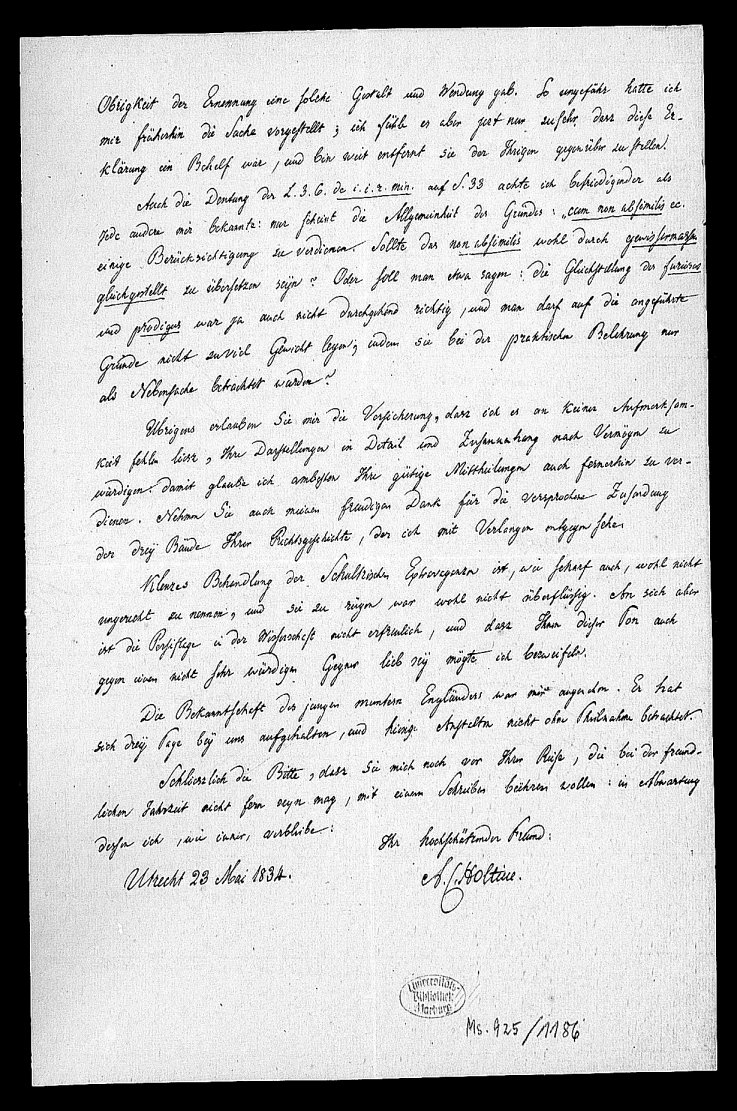 Obrigkeit der Ernennung eine solche Gestalt und Wendung gab. So ungefähr hatte ich
mir früherhin die Sache vorgestellt; ich fühle es aber jetzt nur zu sehr dasz diese Er-
klärung ein Behelf war, und bin weit entfernt sie der Ihrigen gegenüber zu stellen.
Auch die Deutung der L. 3. C. de i. i. r. min. auf S. 33 achte ich befriedigender als
jede andere mir bekannte: nur scheint die Allgemeinheit des Grundes: „cum non absimilis ec.
einige Berücksichtigung zu verdienen. Sollte das non absimilis wohl durch gewissermaszen
gleichgestellt zu übersetzen seyn? Oder soll man etwa sagen: die Gleichstellung des furiosus
und prodigus war ja auch nicht durchgehend richtig, und man darf auf die angeführte
Gründe nicht zu viel Gewicht legen, indem sie bei der praktischen Belehrung nur
als Nebensache betrachtet wurden?
Übrigens erlauben Sie mir die Versicherung, dasz ich es an keiner Aufmerksam-
keit fehlen liesz, Ihre Darstellungen in Detail und Zusammenhang nach Vermögen zu
würdigen. Damit glaube ich ambesten Ihre gütige Mittheilungen auch fernerhin zu ver-
dienen. Nehmen Sie auch meinen freudigen Dank für die versprochene Zusendung
der drey Bände Ihrer Rechtsgeschichte, der ich mit Verlangen entgegen sehe.
Klenzes Behandlung der Schultzischen Extravaganzen ist, wie scharf auch, wohl nicht
ungerecht zu nennen, und sie zu rügen war wohl nicht überflüssig. An sich aber
ist die Persiflage in der Wissenschaft nicht erfreulich, und dasz Ihnen dieser Ton auch
gegen einen nicht sehr würdigen Gegner lieb sey mögte ich bezweifeln.
Die Bekanntschaft des jungen muntern Engländers war mir angenehm. Er hat
sich drey Tage bey uns aufgehalten, und hiesige Anstalten nicht ohne Theilnahme betrachtet.
Schlieszlich die Bitte, dasz Sie mich noch vor Ihrer Reise, die bei der freund-
lichen Jahrzeit nicht fern seyn mag, mit einem Schreiben beehren wollen: in Abwartung
dessen ich, wie immer, verbleibe:
Ihr hochschätzender Freund:
Utrecht 23 Mai 1834.
A. C. Holtius.
Universitäts-
Bibliothek
Marburg
Ms. 925/1186